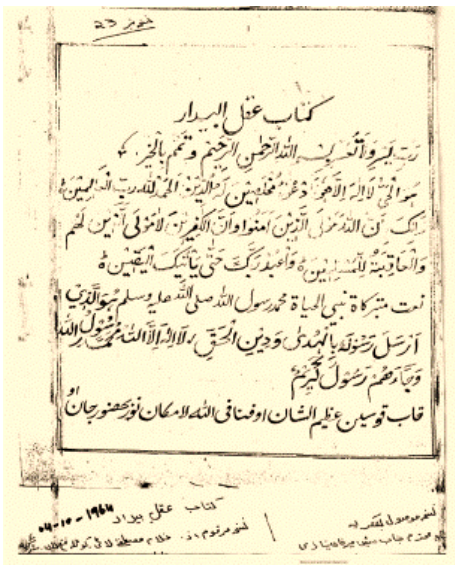 نمبر 23
کتاب عقل البیدار
رَبِّ یَسِّر وَلَا تُعَسِّر بسم اللہ الرَّحمٰنِ الرَّحِیْم وَتَمِّم بِالْخَیْر
ھُوَ الْحَیُّ لَا اِلٰهَ اِلَّا ھُوَ فَادْعُوْهُ مُخْلِصِیْنَ لَهُ الدِّیْنَ اَلْحَمْدُ لِلّٰهِ رَبِّ الْعَالَمِیْنَ
ذٰلِکَ بِاَنَّ اللّٰهَ مَوْلَی الَّذِیْنَ اٰمَنُوْا وَاَنَّ الْکٰفِرِیْنَ لَا مَوْلٰی لَهُم
وَالْعَاقِبَةُ لِلْمُتَّقِیْنَ وَاعْبُدْ رَبَّکَ حَتّٰی یَاْتِیَکَ الْیَقِیْن
نعت متبرکاة نبی الحیاة محمد رسول اللہ صلی اللہ علیہ وسلم ھُوَ الَّذِیْ
اَرْسَلَ رَسُوْلَهٗ بِالْهُدٰی وَدِیْنِ الْحَقِّ لَا اِلٰهَ اِلَّا اللّٰهُ مُحَمَّدٌ رَّسُوْلُ اللّٰه
وَجَآءَھُمْ رَسُوْلٌ کَرِیْمٌ
قاب قوسین عظیم الشان او فنا فی اللہ لامکان نور بحضور جان او
کتاب عقل بیدار 1964-10-04